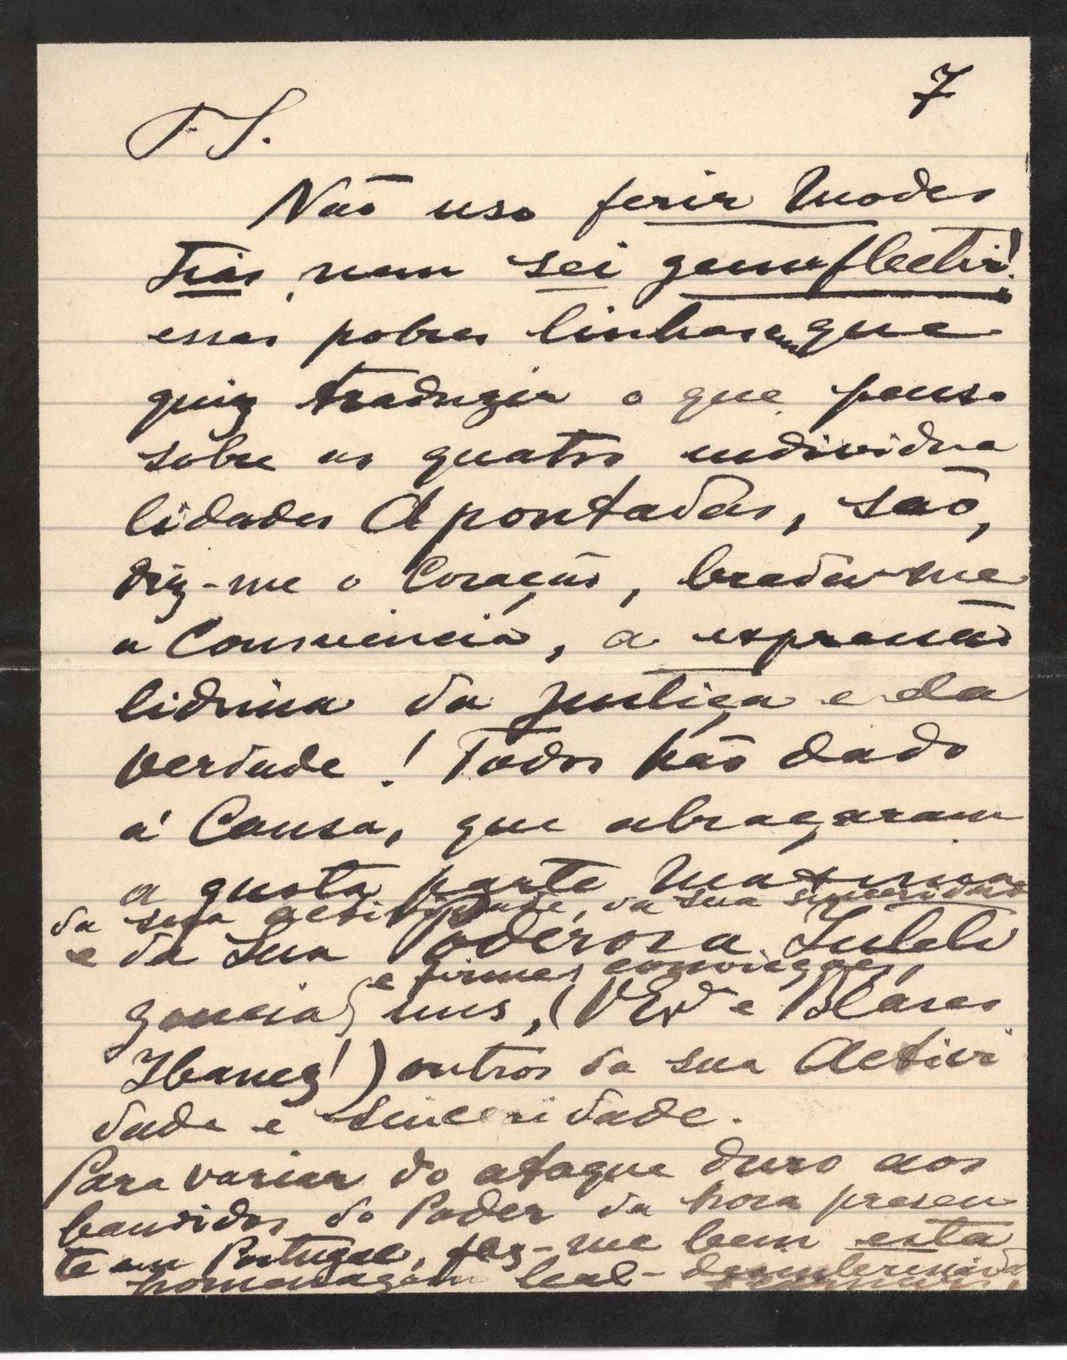 7
F S.
Não uso ferir Modes
tias, nem sei genuflectir!
essas pobres linhas em que
quiz traduzir o que penso
sobre as quatro individua
lidades Apontadas, são,
diz-me o Coração, brada-me
a Consciencia, a expressão
lidima da Justiça e da
verdade! Todos hão dado
á Causa, que abraçaram
a quota parte Maxima
da sua actividade, da sua sinceridade
e da Sua Poderosa Intelli
gencia e firmes convicções,
uns, (V Exª e Blasco
Ibanez!) outros da sua Activi
dade e sinceridade.
Para variar do ataque duro aos
bandidos do Poder da hora presen
te em Portugal, fez-me bem esta
homenagem leal-desinteressada